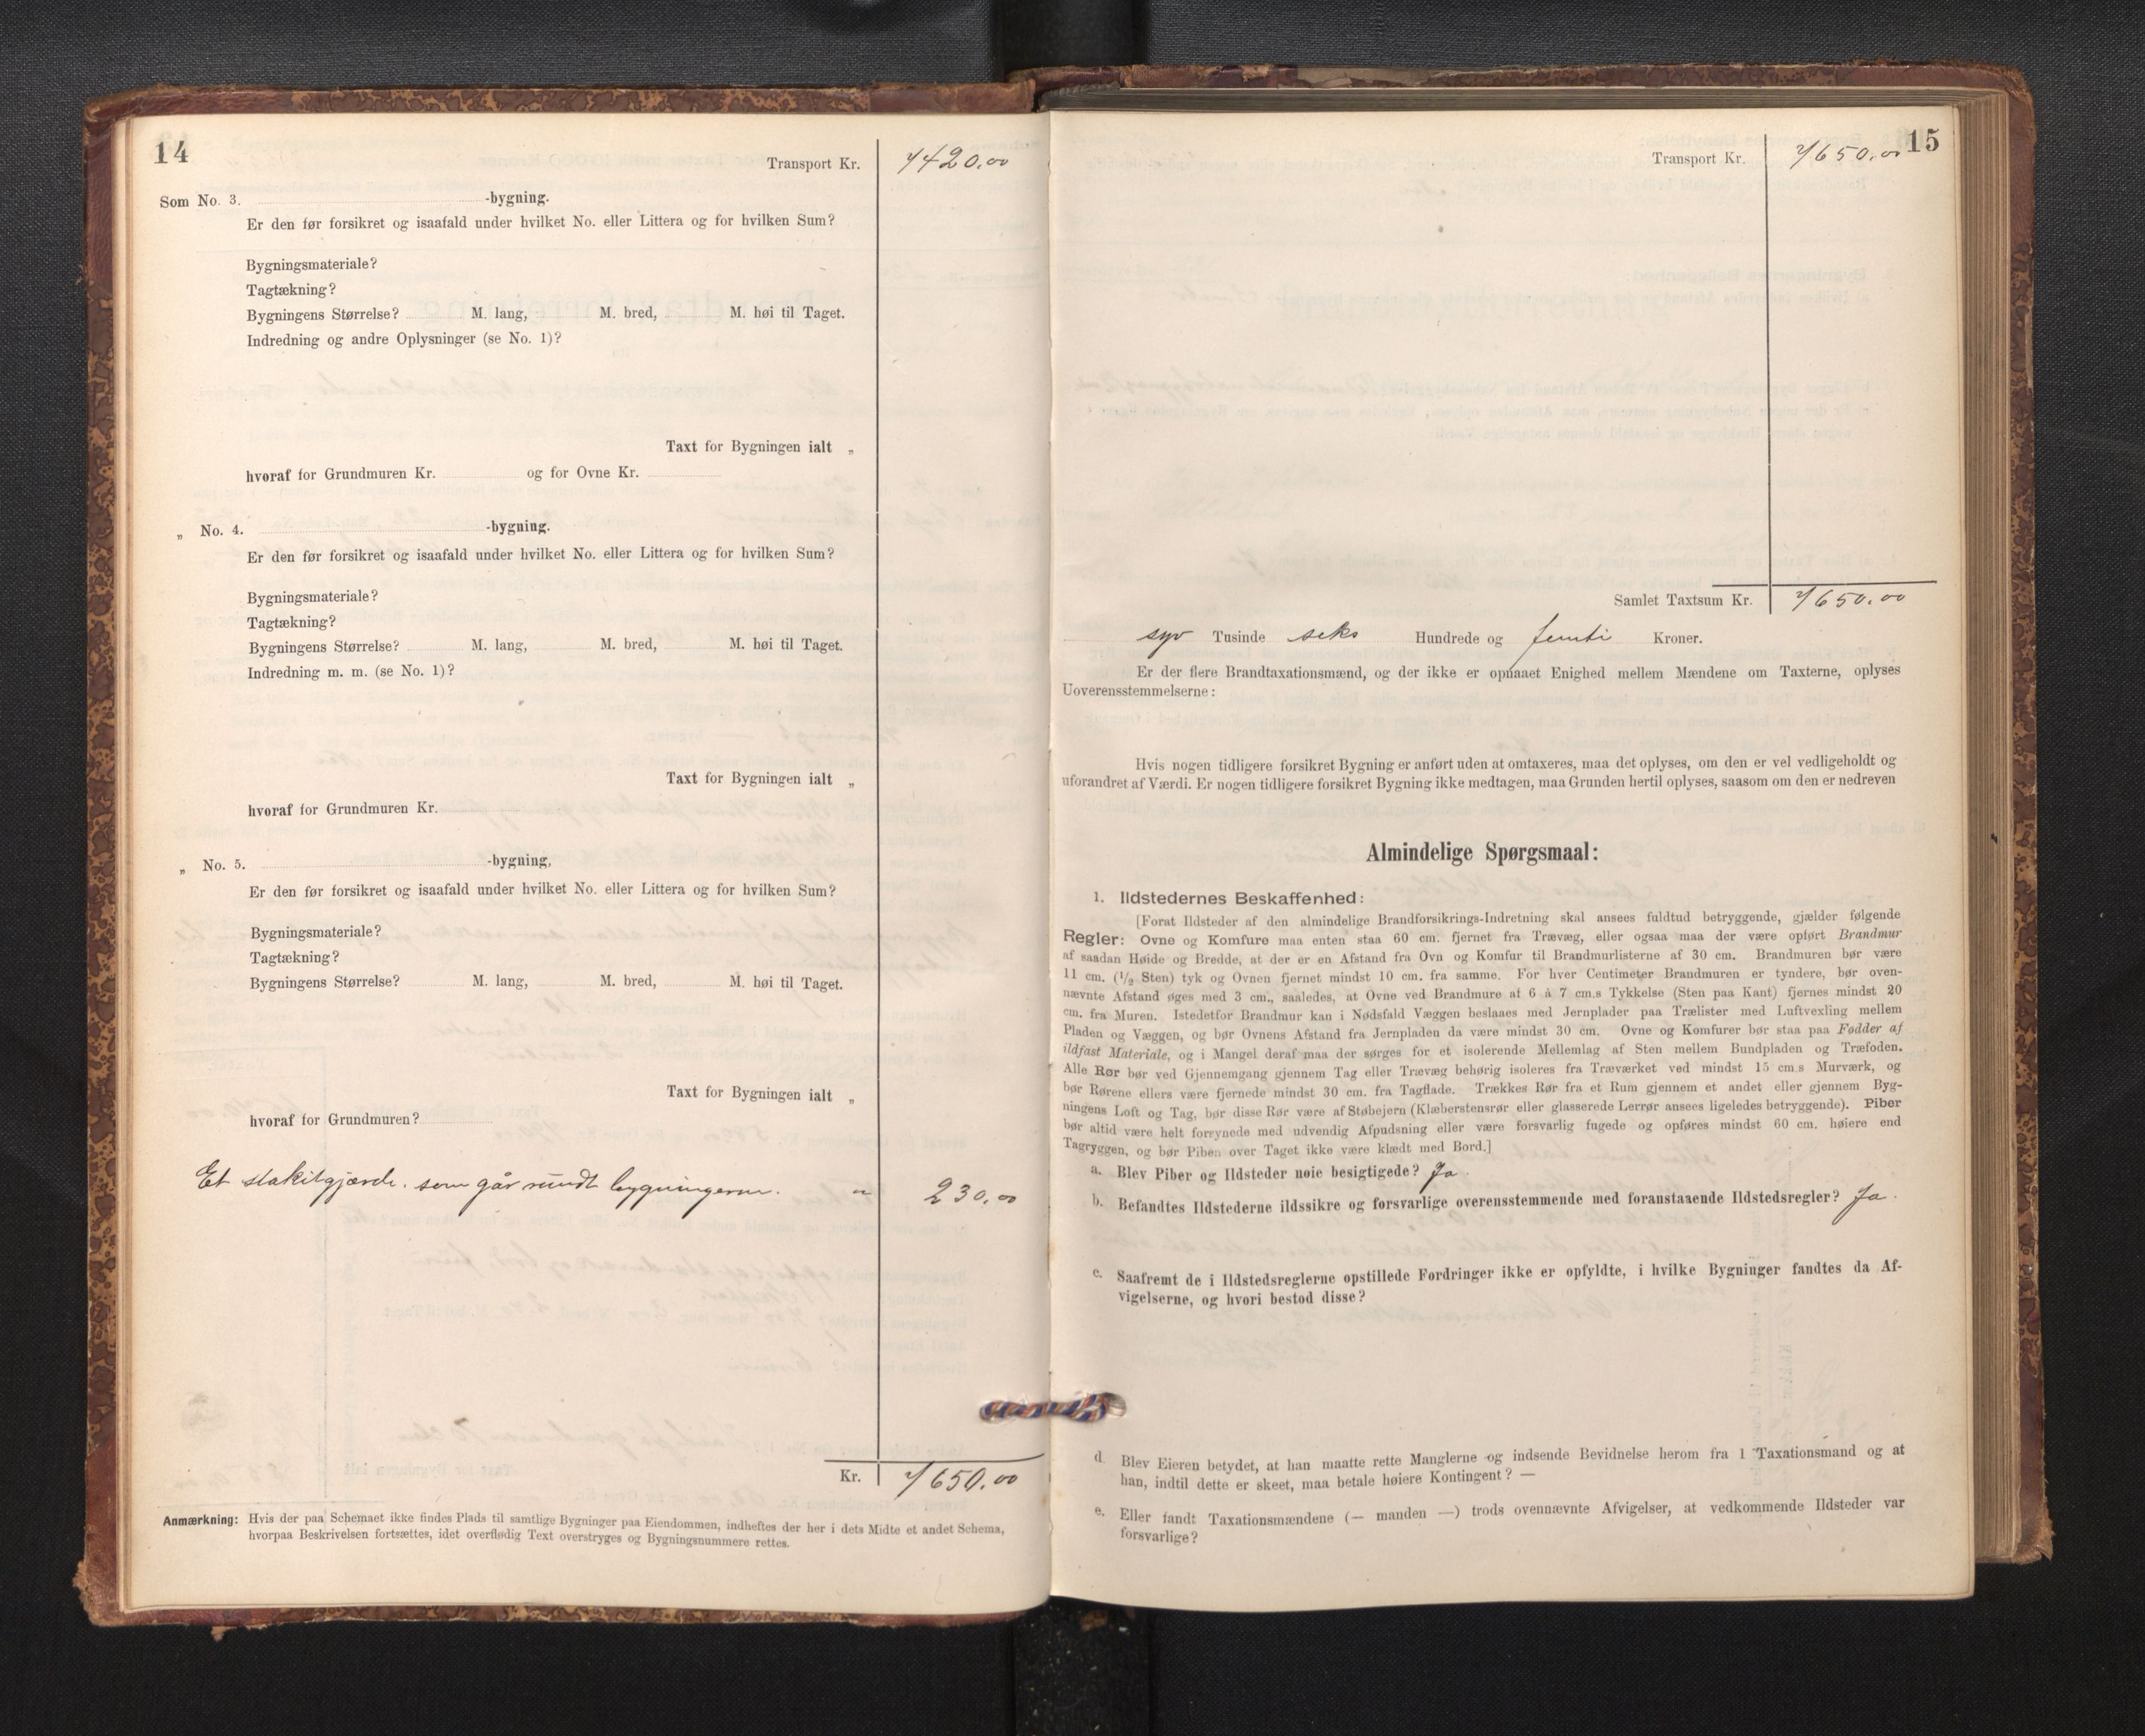 14
Transport Kr. 7420,00
Som No. 3. -bygning.
Er den før forsikret og isaafald under hvilket No. eller Littera og for hvilken Sum?
Bygningsmateriale?
Tagtækning?
Bygningens Størrelse? M. lang, M. bred, M. høi til Taget.
Indredning og andre Oplysninger (se No. 1)?
Taxt for Bygningen ialt „
hvoraf for Grundmuren Kr. og for Ovne Kr.
„ No. 4. -bygning.
Er den før forsikret og isaafald under hvilket No. eller Littera og for hvilken Sum?
Bygningsmateriale?
Tagtækning?
Bygningens Størrelse? M. lang, M. bred, M. høi til Taget.
Indredning m. m. (se No. 1)?
Taxt for Bygningen ialt „
hvoraf for Grundmuren Kr.
„ No. 5. -bygning,
Er den før forsikret og isaafald under hvilket No. eller Littera og for hvilken Sum?
Bygningsmateriale?
Tagtækning?
Bygningens Størrelse? M. lang, M. bred, M. høi til Taget.
Taxt for Bygningen ialt „
hvoraf for Grundmuren?
Et stakitgjærde. som går rundt bygningerne. „ 230,00
Kr. 7650,00
Anmærkning: Hvis der paa Schemaet ikke findes Plads til samtlige Bygninger paa Eiendommen, indheftes der her i dets Midte et andet Schema,
hvorpaa Beskrivelsen fortsættes, idet overflødig Text overstryges og Bygningsnummere rettes.
15
Transport Kr. 7650,00
Samlet Taxtsum Kr. 7650,00
syv Tusinde seks Hundrede og femti Kroner.
Er der flere Brandtaxationsmænd, og der ikke er opnaaet Enighed mellem Mændene om Taxterne, oplyses
Uoverensstemmelserne:
Hvis nogen tidligere forsikret Bygning er anført uden at omtaxeres, maa det oplyses, om den er vel vedligeholdt og
uforandret af Værdi. Er nogen tidligere forsikret Bygning ikke medtagen, maa Grunden hertil oplyses, saasom om den er nedreven
Almindelige Spørgsmaal:
1. Ildstedernes Beskaffenhed:
[Forat Ildsteder af den almindelige Brandforsikrings-Indretning skal ansees fuldtud betryggende, gjælder følgende
Regler: Ovne og Komfure maa enten staa 60 cm. fjernet fra Trævæg, eller ogsaa maa der være opført Brandmur
af saadan Høide og Bredde, at der er en Afstand fra Ovn og Komfur til Brandmurlisterne af 30 cm. Brandmuren bør være
11 cm. (1/2 Sten) tyk og Ovnen fjernet mindst 10 cm. fra samme. For hver Centimeter Brandmuren er tyndere, bør oven-
nævnte Afstand øges med 3 cm., saaledes, at Ovne ved Brandmure af 6 à 7 cm.s Tykkelse (Sten paa Kant) fjernes mindst 20
cm. fra Muren. Istedetfor Brandmur kan i Nødsfald Væggen beslaaes med Jernplader paa Trælister med Luftvexling mellem
Pladen og Væggen, og bør Ovnens Afstand fra Jernpladen da være mindst 30 cm. Ovne og Komfurer bør staa paa Fødder af
ildfast Materiale, og i Mangel deraf maa der sørges for et isolerende Mellemlag af Sten mellem Bundpladen og Træfoden.
Alle Rør bør ved Gjennemgang gjennem Tag eller Trævæg behørig isoleres fra Træværket ved mindst 15 cm.s Murværk, og
bør Rørene ellers være fjernede mindst 30 cm. fra Tagflade. Trækkes Rør fra et Rum gjennem et andet eller gjennem Byg-
ningens Loft og Tag, bør disse Rør være af Støbejern (Klæberstensrør eller glasserede Lerrør ansees ligeledes betryggende). Piber
bør altid være helt forsynede med udvendig Afpudsning eller være forsvarlig fugede og opføres mindst 60 cm. høiere end
Tagryggen, og bør Piben over Taget ikke være klædt med Bord.]
a. Blev Piber og Ildsteder nøie besigtigede? Ja.
b. Befandtes Ildstederne ildssikre og forsvarlige overensstemmende med foranstaaende Ildstedsregler? Ja.
c. Saafremt de i Ildstedsreglerne opstillede Fordringer ikke er opfyldte, i hvilke Bygninger fandtes da Af-
vigelserne, og hvori bestod disse?
d. Blev Eieren betydet, at han maatte rette Manglerne og indsende Bevidnelse herom fra 1 Taxationsmand og at
han, indtil dette er skeet, maa betale høiere Kontingent? —
e. Eller fandt Taxationsmændene (— manden —) trods ovennævnte Afvigelser, at vedkommende Ildsteder var
forsvarlige?